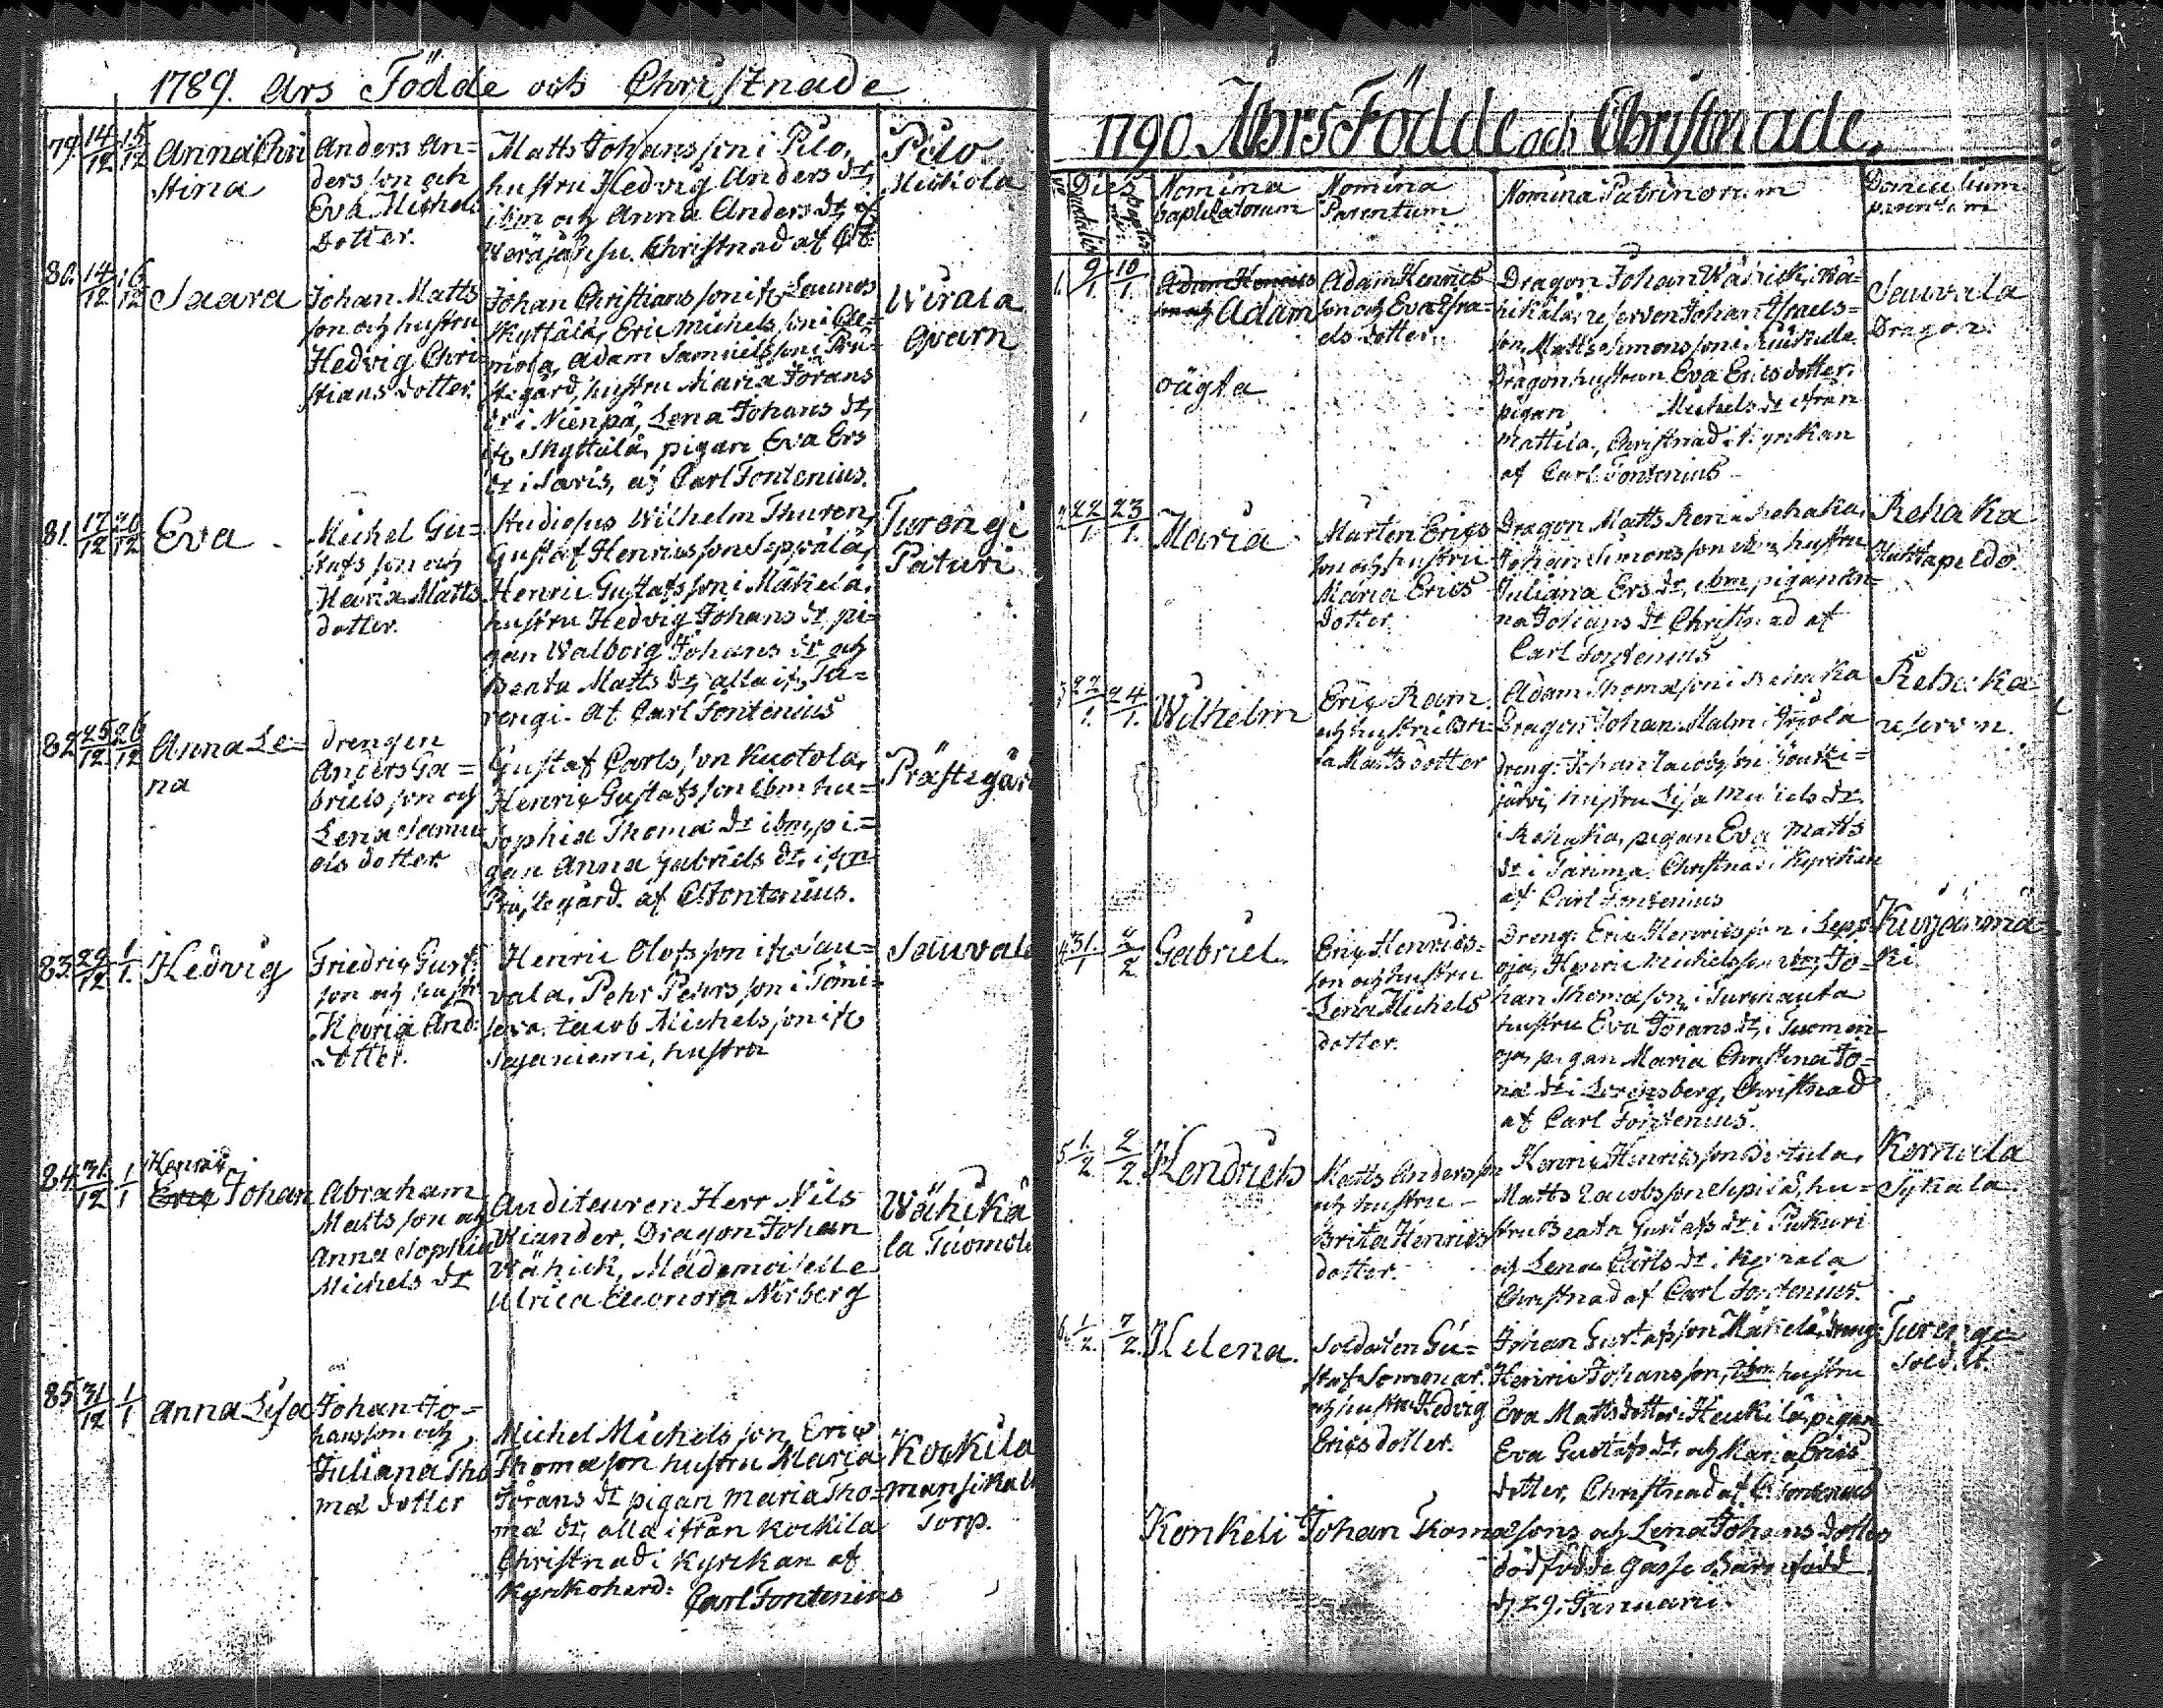 1789. Års Födde och Christnade
79. 14/12 15/12 Anna Chri
stina
Anders An=
ders son och
Eva Michels
Dotter.
Matts Johans son i Pilo,
hustru Hedvig Anders dr,
ibm och Anna Anders dr, af
Christnad af
Pilo
80. 14/12 16/12 Saara
Johan Matts
son och hustru
Hedvig Chri=
stians dotter.
Johan Christians son ifr
Skyttälä, Eric Michels son i
mola, Adam Samuels son i Prä=
stegård, hustru Maria Jörans
dr i Nienpä, Lena Johans dr,
ifr Skyttälä, pigan Eva Ers
dr i Saris, af Carl Fontenius.
Wirala
Qvarn
81. 17/12 20/12 Eva
Michel Gu=
stafs son och
Maria Matts
dotter.
Studiosus Wilhelm Thuren,
Gustaf Henrics son Seppälä,
Henric Gustafs son i Mäkelä,
hustru Hedvig Johans dr, pi=
gan Walborg Johans dr och
Beata Matts dr, alla ifr Tu=
rengi. af Carl Fontenius
Turengi
Paturi
82. 25/12 26/12 Anna Le=
na
drengen
Anders Ga=
briels son och
Lena Samu
els dotter.
Gustaf Carls son Kuotola,
Henric Gustafs son ibm hu=
Sophia Thomæ dr ibm, pi=
gan Anna Gabriels dr, ifrn
Prästegård. af C. Fontenius.
Prästegård
83. 29/12 1/1. Hedvig
Friedric Gust:
son och hustr
Maria And:
dotter.
Henric Olofs son ifr Sau=
vala, Pehr Pehrs son i Tömi=
Jacob Michels son ifr
Sajaniemi, hustru
Sauvala
84. 31/12 1/1
Henric
Eric Johan
Abraham
Matts son och
Anna Sophia
Michels dr
Auditeuren Herr Nils
Wiander, Dragon Johan
Wähick, Mademoiselle
Ulrica Eleonora Norberg
Wähikä
la Tuomola
85. 31/12 1/1 Anna Lisa
Johan Jo=
hans son och
Juliana Tho
mæ dotter
Michel Michels son, Eric
Thomæ son hustru Maria
Jörans dr pigan Maria Tho=
mæ dr, alla ifrån Kockila
Christnad i Kyrckan af
Kyrckoherd: Carl Fontenius
Kockila
Torp.
1790 Åhrs Födde och Christnade.
Dies
Nomina
baptizatorum
Nomina
Parentum
Nomina Patrinorum
Domicilium
parentum
1. 9/1. 10/1
Adam Henrics
son och Adam
oägta
Adam Henrics
son och Eva Isra=
els dotter.
Dragon Johan Wähick i Wä=
hikälä, reserven Johan Israels=
son, Matts Simons son i
Dragon hustrun Eva Erics dotter,
pigan Michels dr ifrån
Mattila, Christnad i Kyrckan
af Carl Fontenius
Sauvala
Dragon.
2. 22/1. 23/1. Maria
Mårten Erics
son och hustru
Maria Erics
dotter.
Dragon Matts Ren i Rehaka,
Johan Simons son ibm, hustru
Juliana Ers dr, ibm, pigan An=
na Johans dr Christnad af
Carl Fontenius
Rehaka
3. 22/1. 24/1. Wilhelm
Eric Ram
och hustru Bri=
ta Matts dotter
Adam Thomæ son i Rehaka
Dragon Johan Malm i
dreng: Johan Jacobs son i
järvi, hustru Lisa Michels dr
i Rehaka, pigan Eva Matts
dr i Tarima, Christnad i Kyrckan
af Carl Fontenius
Rehaka
reserven.
4. 31./1 2/2 Gabriel.
Eric Henrics=
son och hustru
Lena Michels
dotter.
Dreng: Eric Henrics son i Lepp
oja, Henric Michels son ibm, Jo=
han Thomæ son i Turenauta
hustru Eva Jörans dr, i Tuomen
oja, pigan Maria Christina Jo=
næ dr i Lerensberg, Christnad
af Carl Fontenius.
5. 1./2 2/2. Hendrich
Matts Andersson
och hustru
Brita Henrics
dotter.
Henric Henrics son Pertula,
Matts Jacobs son Sepilä, hu=
stru Beata Gustafs dr i Pukuri
och Lena Carls dr i Kernala
Christnad af Carl Fontenius.
Kernala
Sykälä.
6. 1/2. 7/2. Helena.
Soldaten Gu=
staf
och hustru Hedvig
Erics dotter.
Johan Gustafs son Mäkelä, dreng:
Henric Johans son, ibm hustru
Eva Matts dotter i Heikilä, pigan
Eva Gustafs dr, och Maria Erics
dotter, Christnad af C. Fontenius
Turengi
Soldat.
Konkeli Johan Thomæ sons och Lena Johans dotters
dödfödde Gosse Barn född
d. 29. Januarii.